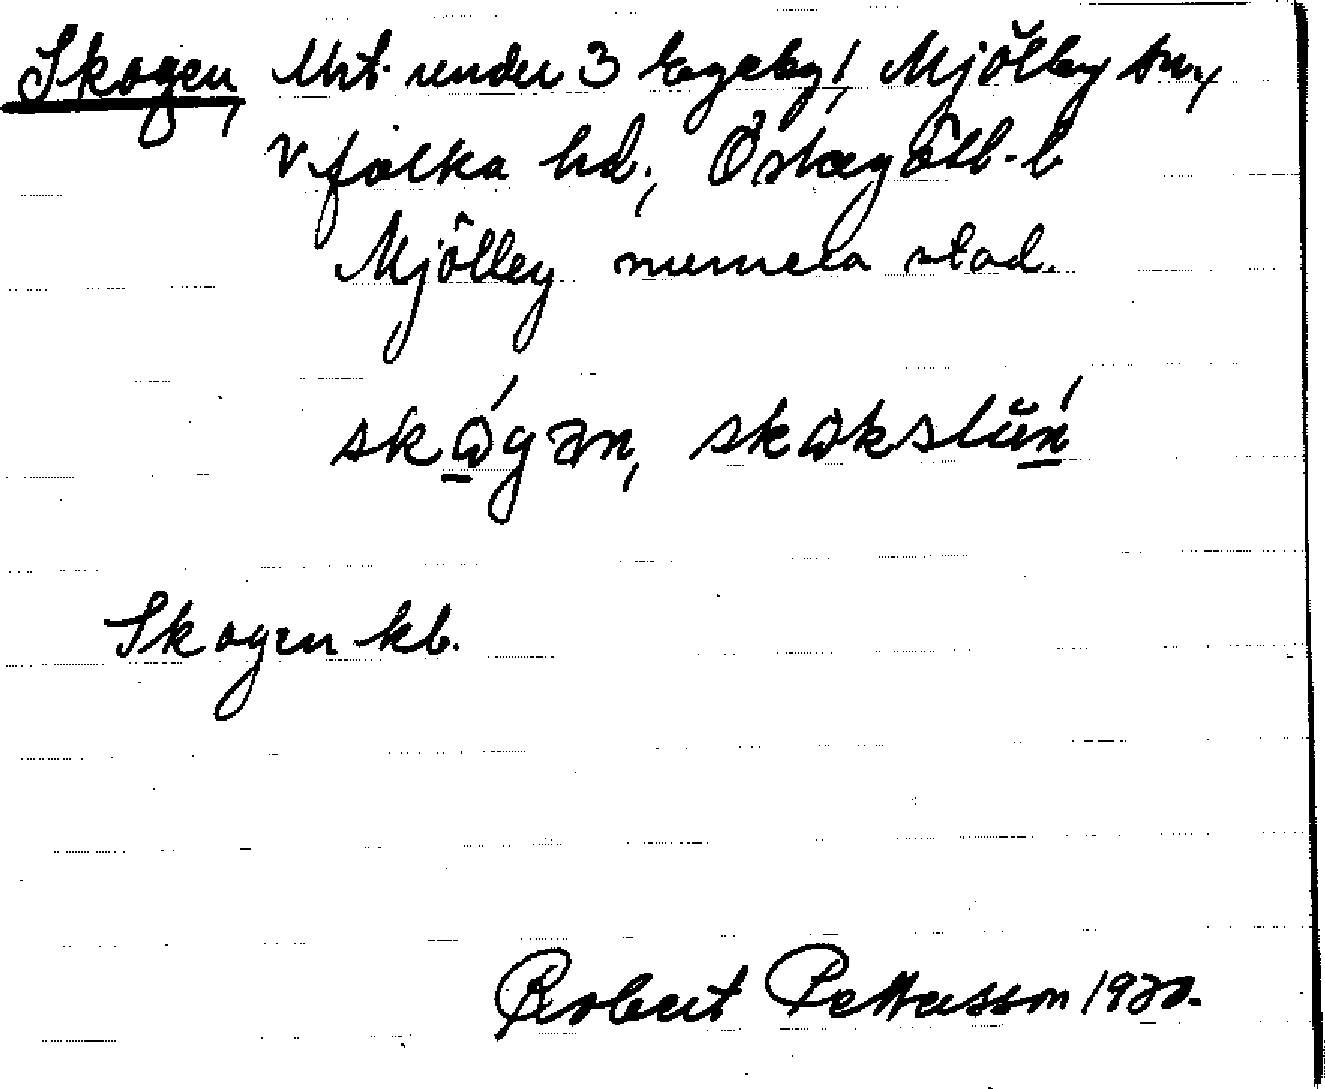 Skogen, Utst. under 3 Egeby, Mjölby sn,
Vifolka hd, Östergötl. l
Mjölby numera stad.
skǫ́gən, skǫkslún
Skogen kb.
Robert Pettersson 1930.